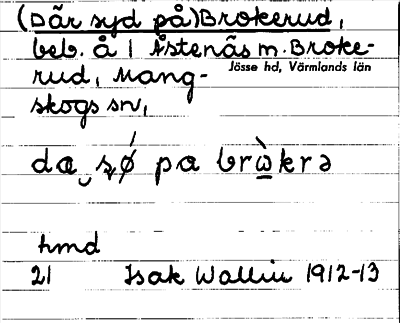 (Där syd på) Brokerud,
beb. å 1 Åstenäs m. Broke-
rud, Mang-
Jösse hd, Värmlands län
skogs sn,
da sǿ pa brὼkrə
hmd
21 Isak Wallin 1912-13